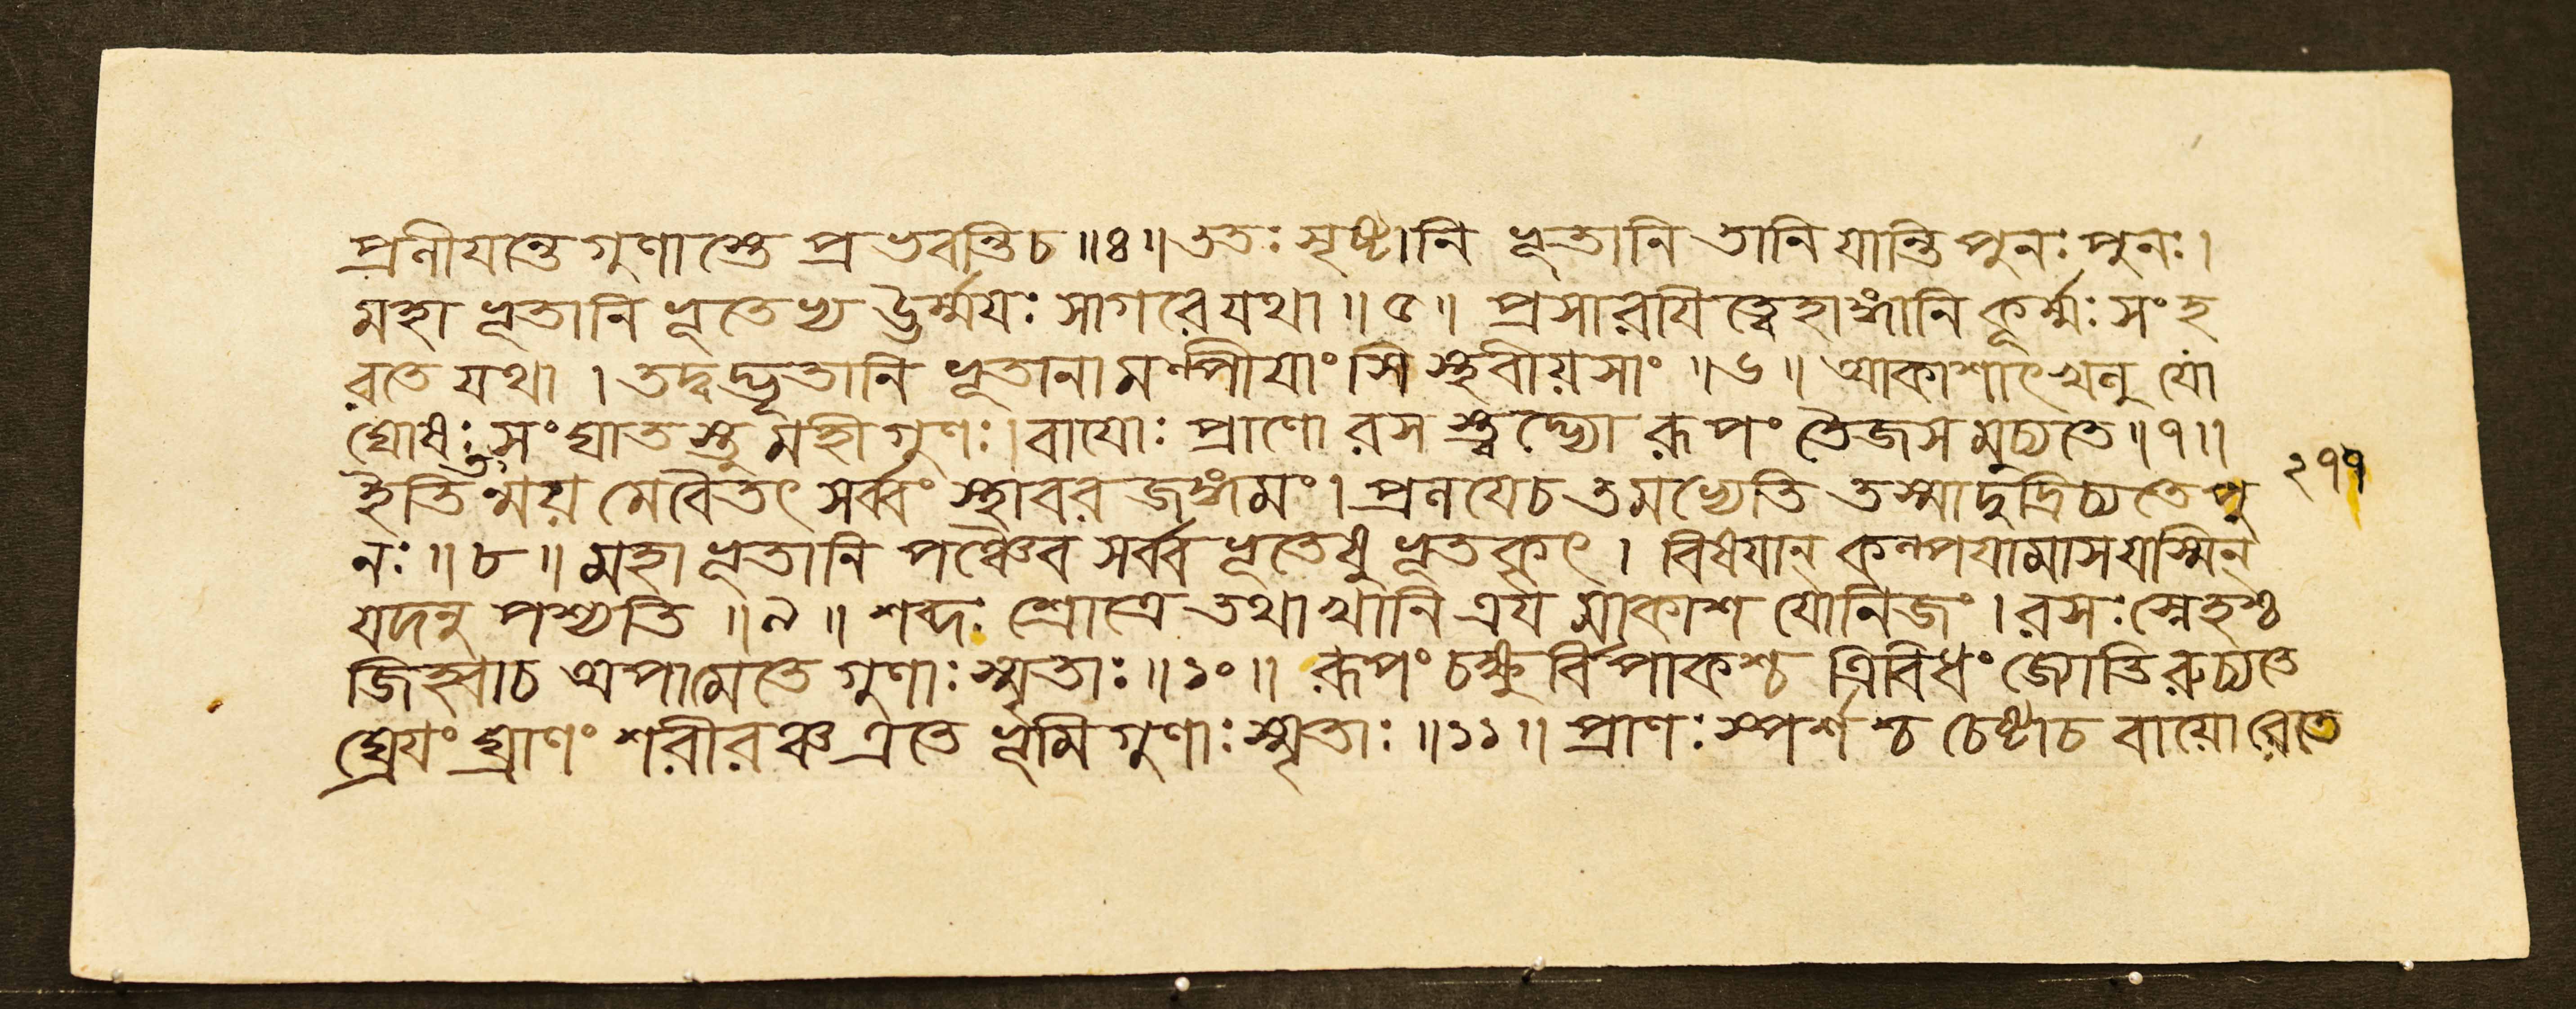 প্রলীযন্তে গুণাস্তে প্রভবন্তি চ ॥ ৪ ॥ ততঃ সৃষ্টানি ভূতানি তানি যান্তি পুনঃ পুনঃ ।
মহাভূতানি ভূতেভ্য ঊর্ম্ময়ঃ সাগরে যথা ॥ ৫ ॥ প্রসারযিত্বেহাঙ্গানি কূর্ম্মঃ সংহ
রতে যথা । তদ্বদ্ভূতানি ভূতানামল্পীযাংসি স্থবীয়সাং ॥ ৬ ॥ আকাশাৎ খলু যো
ঘোষঃ সংঘাতস্তু মহীগুণঃ । বাযোঃ প্রাণো রসস্ত্বদ্ভ্যো রূপং তৈজসমুচ্যতে ॥ ৭ ॥
ইত্যেতন্ময়মেবৈতৎ সর্ব্বং স্থাবরজঙ্গমং । প্রলযে চ তমভ্যেতি তস্মাদুদ্রিচ্যতে পু
নঃ ॥ ৮ ॥ মহাভূতানি পঞ্চৈব সর্ব্বভূতেষু ভূতকৃৎ । বিষযান্ কল্পযামাস যস্মিন্
যদনুপশ্যতি ॥ ৯ ॥ শব্দঃ শ্রোত্রে তথা খানি ত্রযমাকাশযোনিজং । রসঃ স্নেহশ্চ
জিহ্বা চ অপামেতে গুণাঃ স্মৃতাঃ ॥ ১০ ॥ রূপং চক্ষুর্বিপাকশ্চ ত্রিবিধং জ্যোতিরুচ্যতে
ঘ্রেযং ঘ্রাণং শরীরঞ্চ এতে ভূমিগুণাঃ স্মৃতাঃ ॥ ১১ ॥ প্রাণঃ স্পর্শশ্চ চেষ্টা চ বায়োরেতে
২৭৭